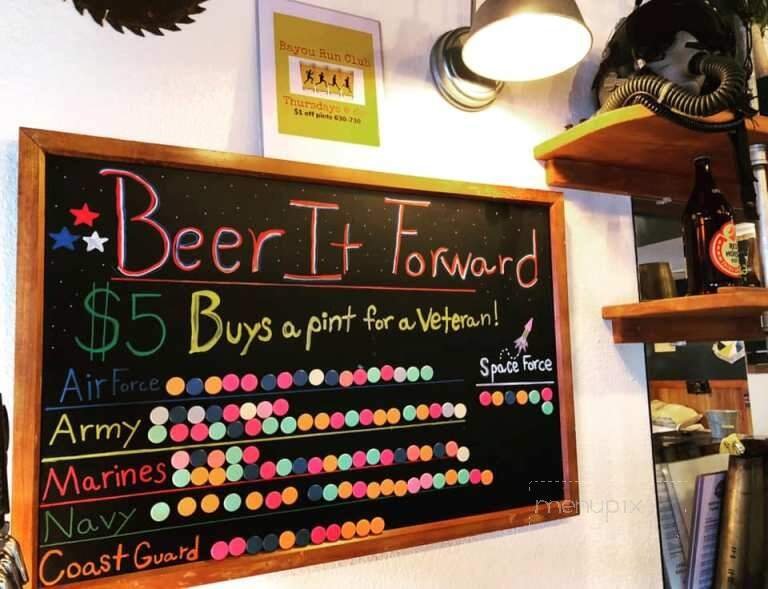 Bayou Run Club
Thursdays
$1 off pints 630-730
Beer It Forward
$5 Buys a pint for a Veteran!
Air Force
Space Force
Army
Marines
Navy
Coast Guard
menupix